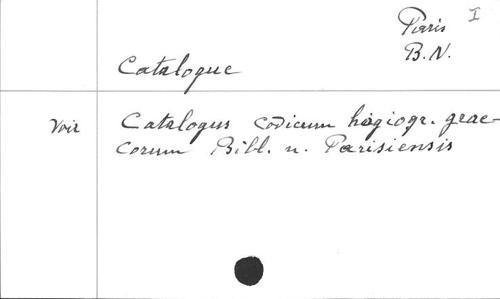 Paris I
B.N.
Catalogue
Voir Catalogus codicum hagiogr. grae-
corum Bibl. n. Parisiensis